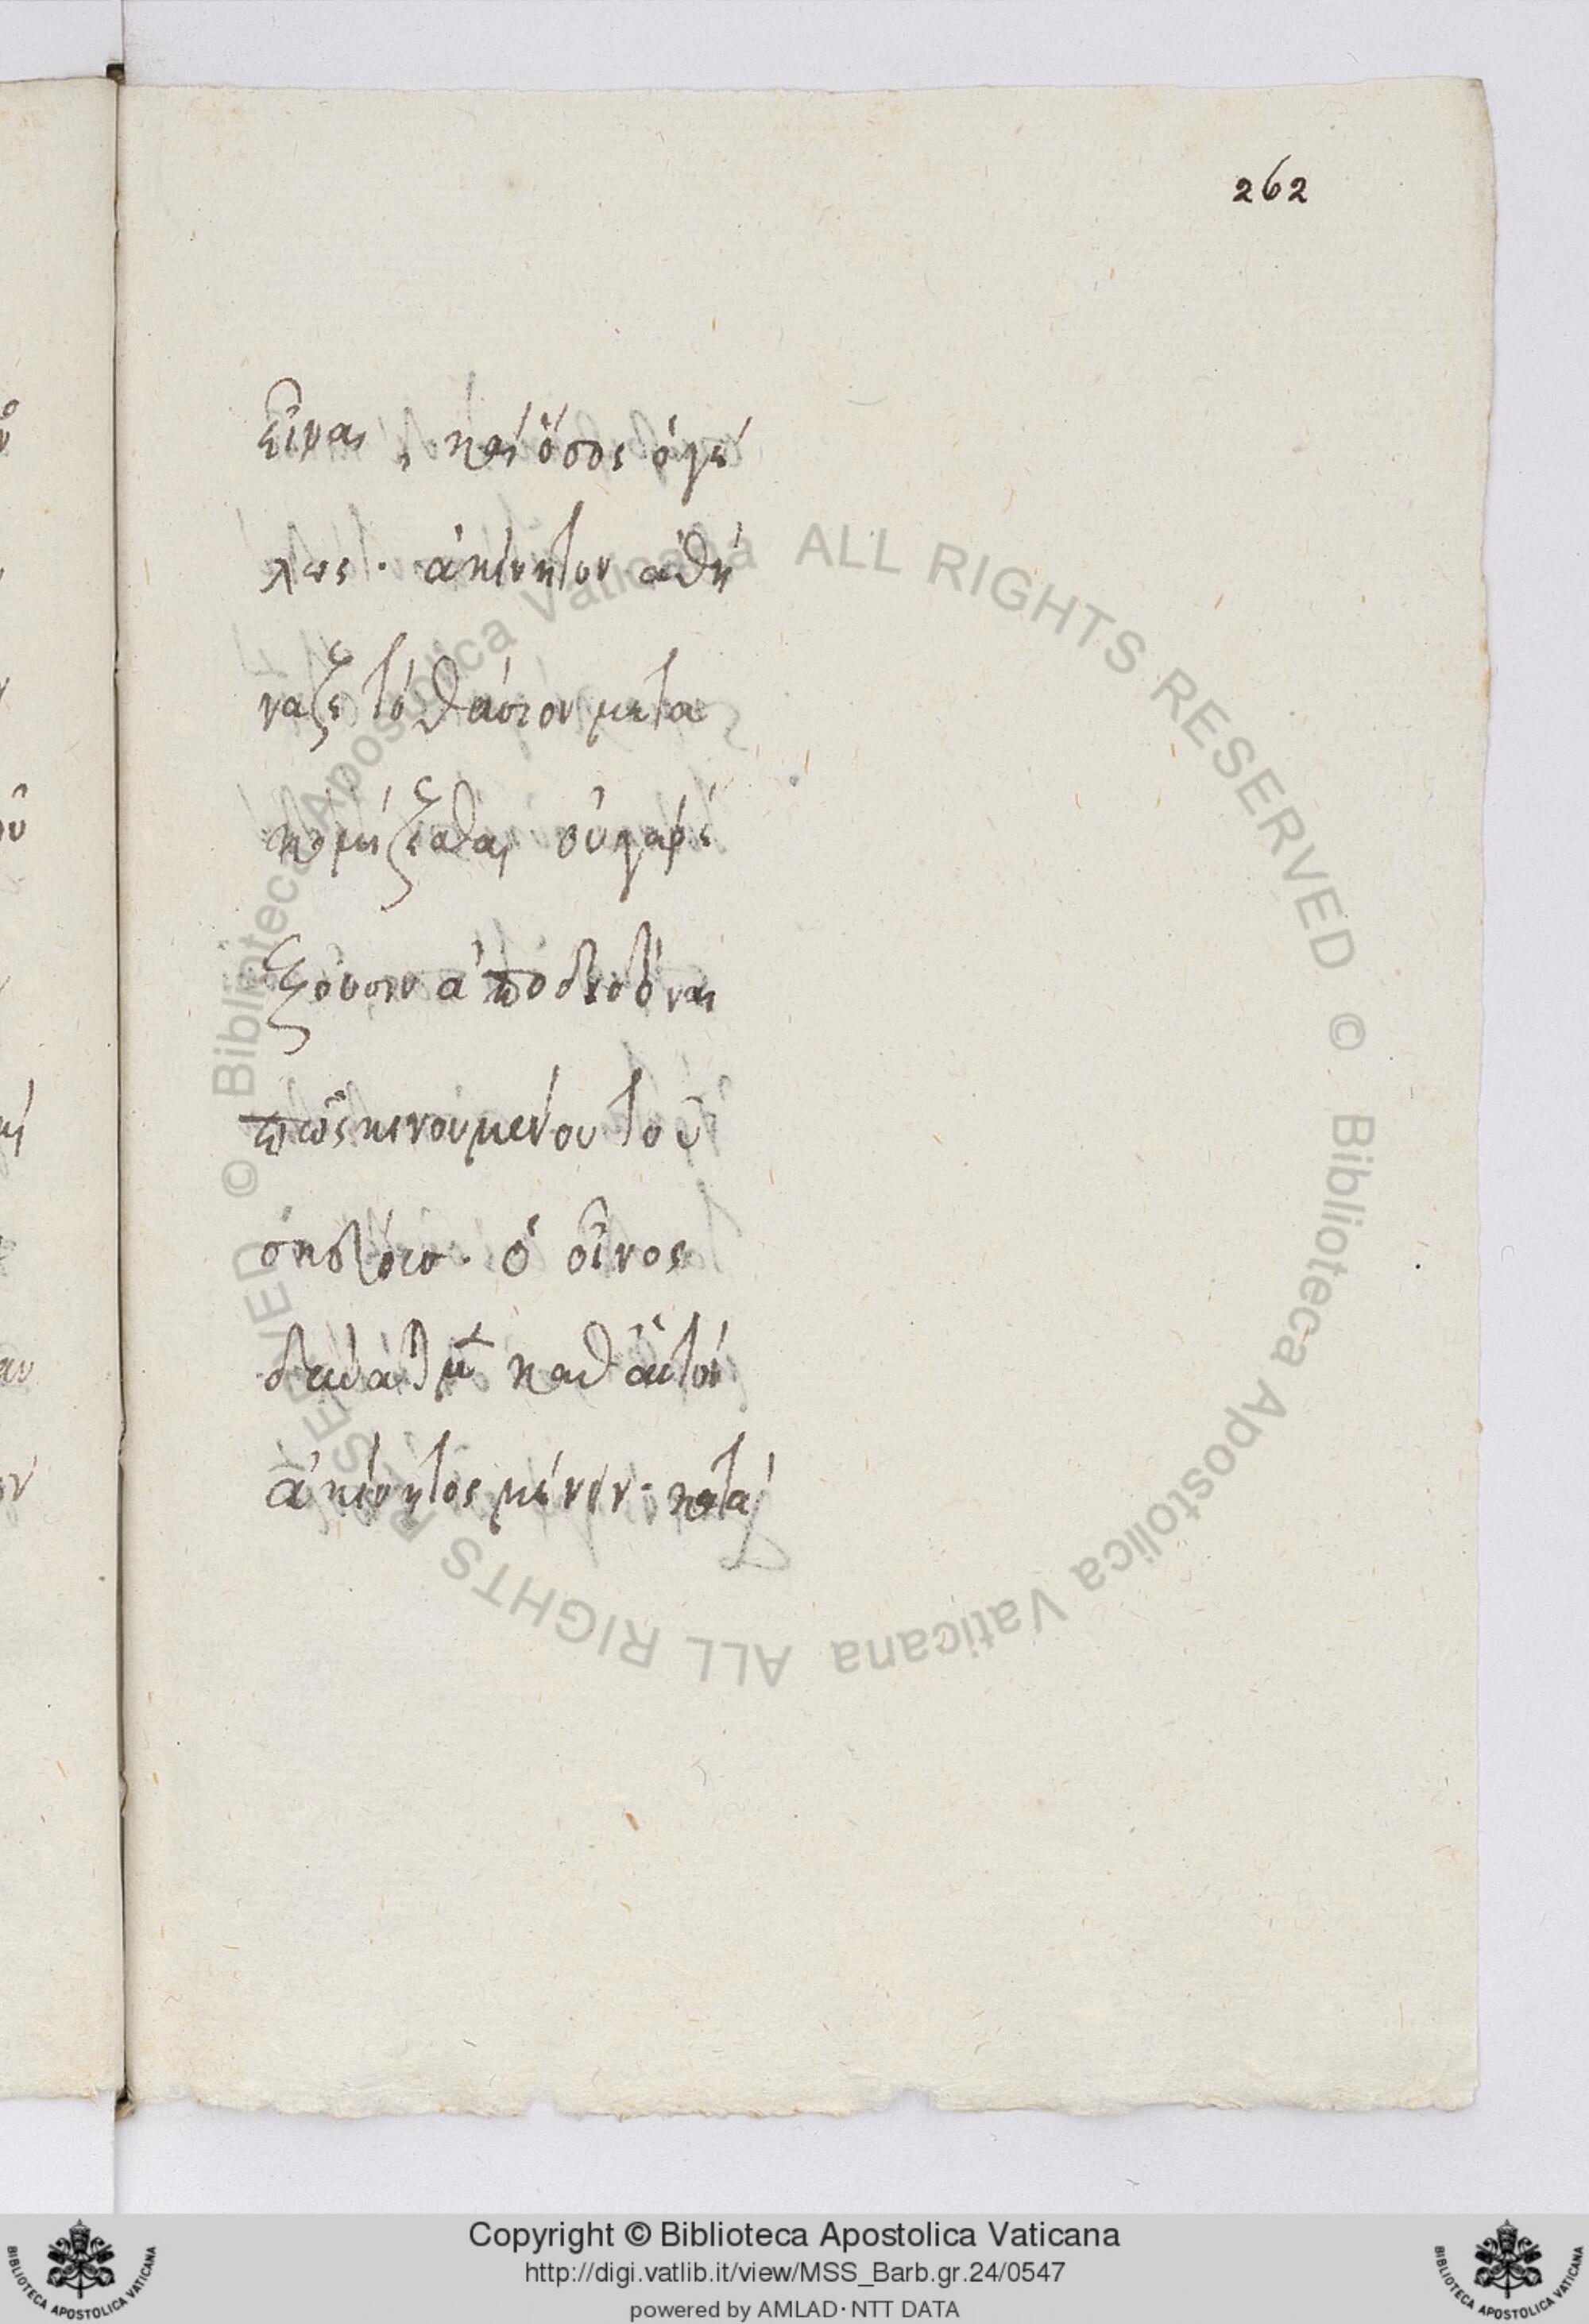 262
εἶναι, καὶ ὅσος ὁ γέ
λως. ἀκίνητον ἀθή
ναζε τὸ θέατρον μετα
κομίζεσθαι οὐ γὰρ ἕ
ξουσιν ἀποδιδόναι
πῶς κινουμένου τοῦ
ὁ οἶνος
καθ αὑτὸν
ἀκίνητος μένει. κατὰ
© Biblioteca Apostolica Vaticana ALL RIGHTS RESERVED © Biblioteca Apostolica Vaticana ALL RIGHTS RESERVED
Copyright © Biblioteca Apostolica Vaticana
http://digi.vatlib.it/view/MSS_Barb.gr.24/0547
powered by AMLAD·NTT DATA
BIBLIOTECA APOSTOLICA VATICANA
BIBLIOTECA APOSTOLICA VATICANA